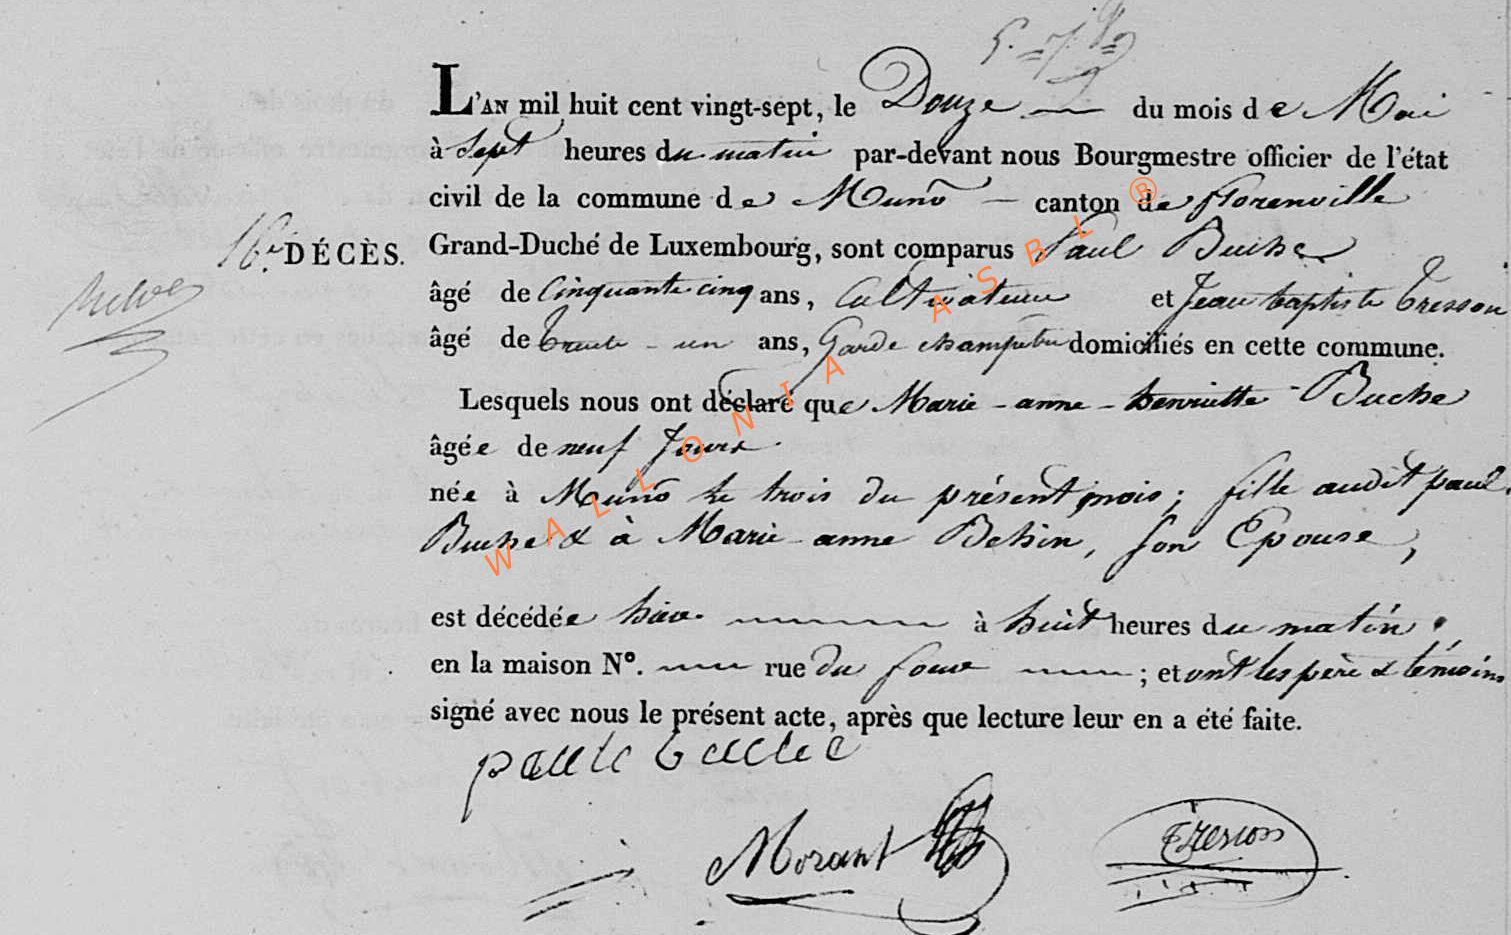 L'AN mil huit cent vingt-sept, le Douze du mois de Mai
à Sept heures du matin par-devant nous Bourgmestre officier de l'état
civil de la commune de Muno canton de florenville
16.e DÉCÈS. Grand-Duché de Luxembourg, sont comparus Paul Buche
âgé de Cinquante cinq ans, Cultivateur et Jean baptiste Tresson
âgé de trente-un ans, Garde champêtre domiciliés en cette commune.
Lesquels nous ont déclaré que Marie-anne-henriette Buche
âgée de neuf Jours
née à Muno le trois du présent mois; fille audit paul
Buche & à Marie-anne Bechin, son Epouse,
est décédée hier à huit heures du matin.
en la maison N°. rue du ; et ont les père & témoins
signé avec nous le présent acte, après que lecture leur en a été faite.
paul buche
Morant Tresson
WALLONIA ASBL ®